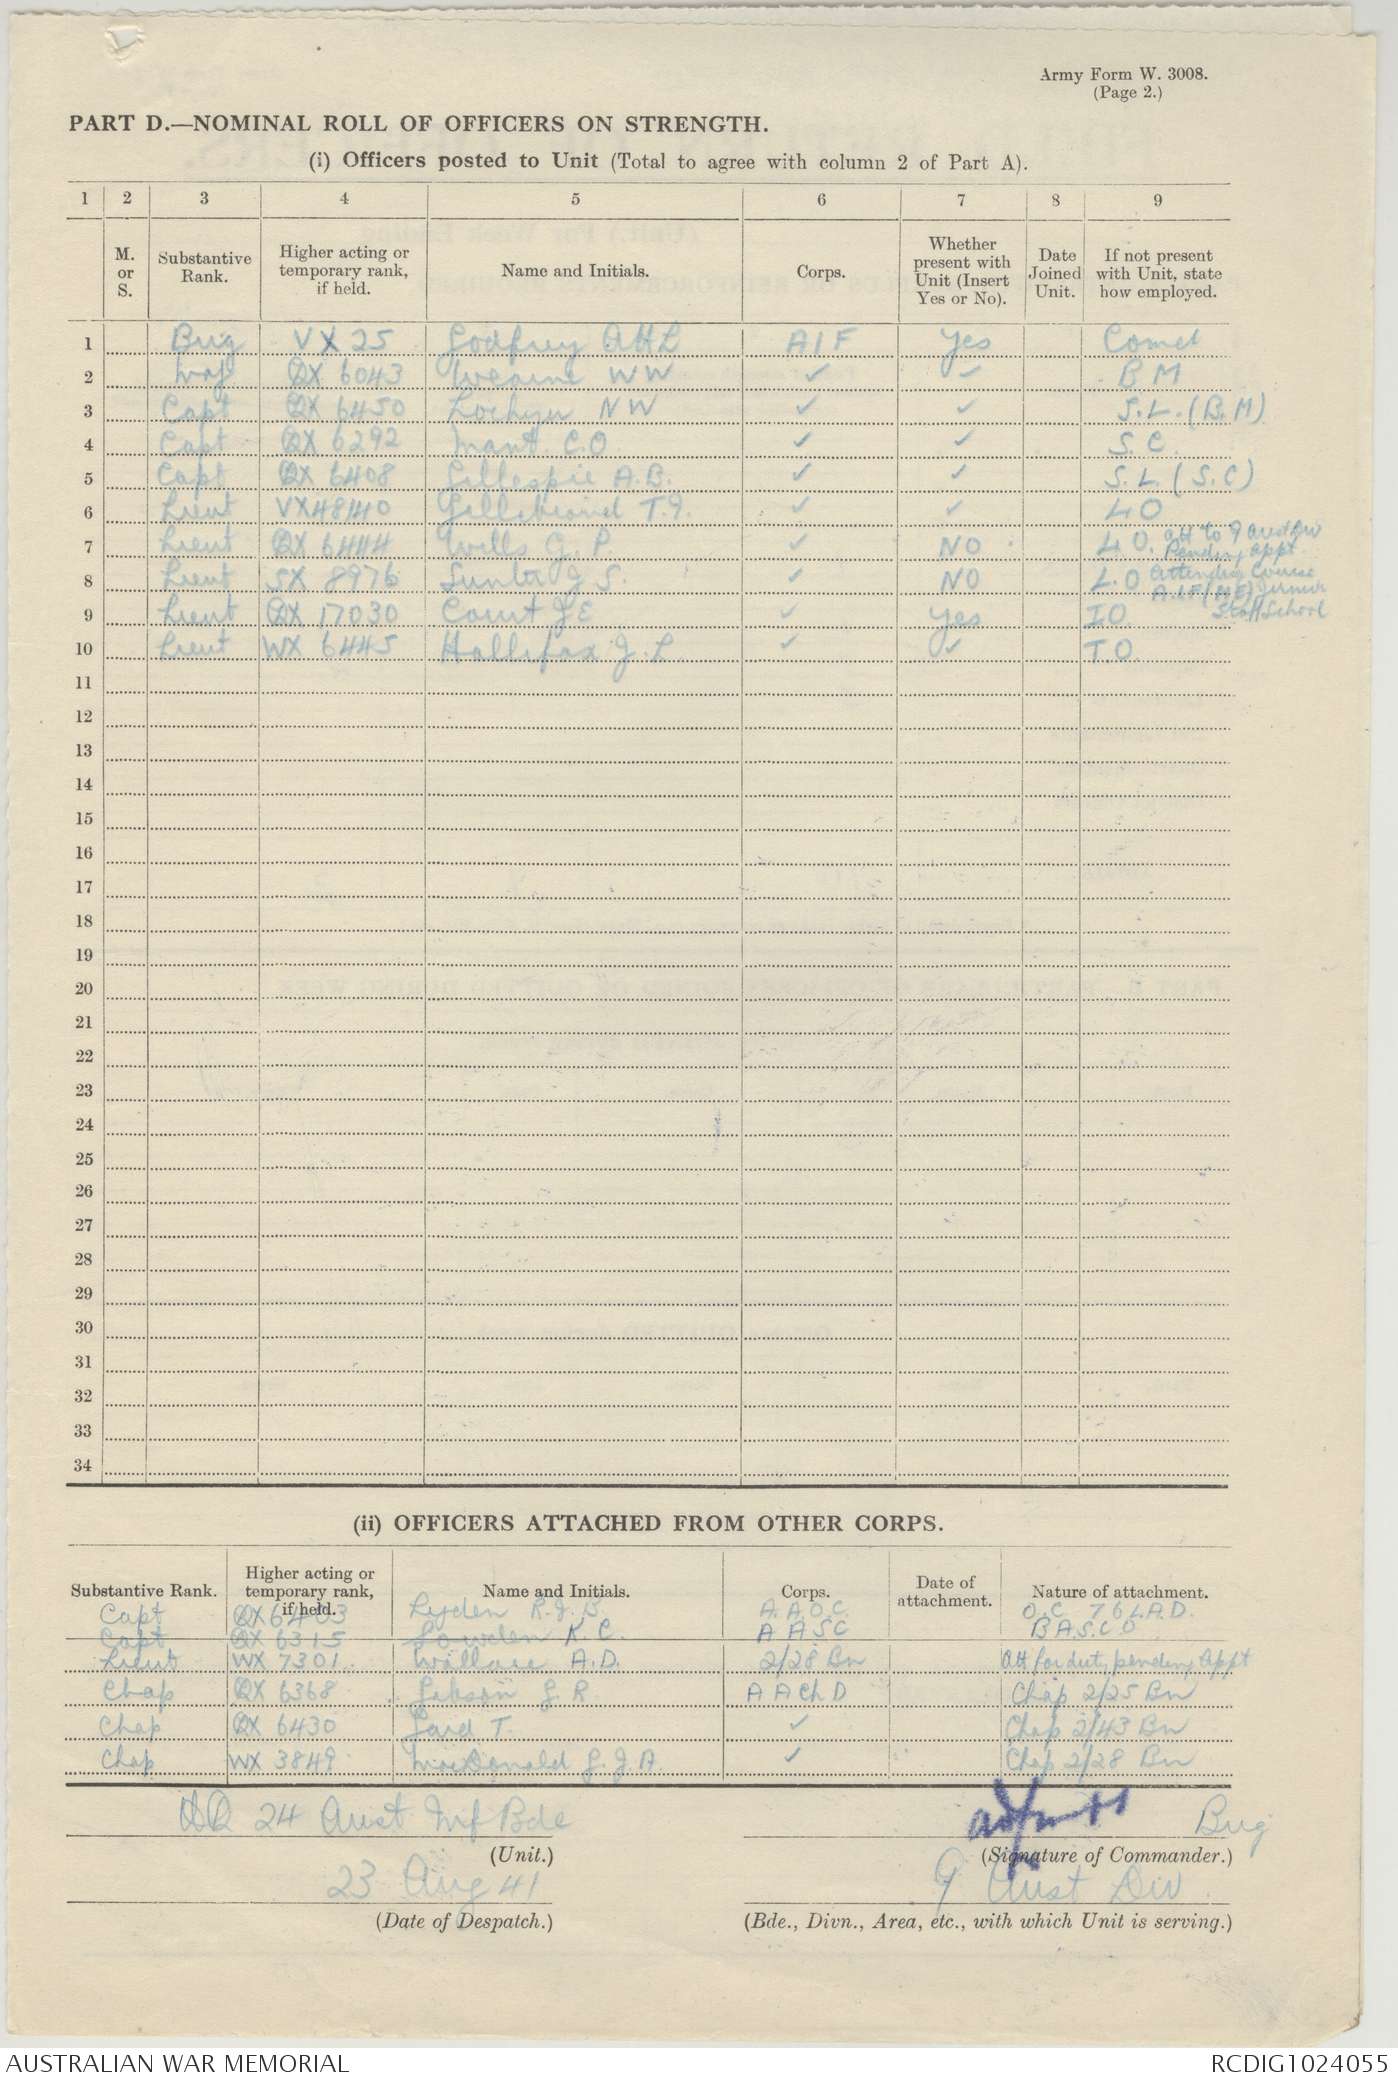 Army Form W. 3008.
(Page 2.)
PART D.—NOMINAL ROLL OF OFFICERS ON STRENGTH.
(i) Officers posted to Unit (Total to agree with column 2 of Part A).
1 2 3 4 5 6 7 8 9
M. or S. Substantive Rank. Higher acting or temporary rank, if held. Name and Initials. Corps. Whether present with Unit (Insert Yes or No). Date Joined Unit. If not present with Unit, state how employed.
1 Brig VX 25 Godfrey A H L AIF Yes Comd
2 Maj QX 6043 Wearne W W ✓ ✓ B M
3 Capt QX 6450 Lockyer N W ✓ ✓ S.L. (B.M)
4 Capt QX 6292 Mant C.O. ✓ ✓ S.C.
5 Capt QX 6408 Gillespie A.B. ✓ ✓ S.L. (S.C)
6 Lieut VX48140 T.G. ✓ ✓ LO
7 Lieut QX 6444 Wills G. P. ✓ NO L.O. att to 9 Aust Div Pending appt
8 Lieut SX 8976 Sunter G S. ✓ NO L.O Attending Course A.I.F (M.E) Junior Staff School
9 Lieut QX 17030 Court J E ✓ Yes IO
10 Lieut WX 6445 Hallifax J. L ✓ ✓ T.O.
11
12
13
14
15
16
17
18
19
20
21
22
23
24
25
26
27
28
29
30
31
32
33
34
(ii) OFFICERS ATTACHED FROM OTHER CORPS.
Substantive Rank. Higher acting or temporary rank, if held. Name and Initials. Corps. Date of attachment. Nature of attachment.
Capt QX6403 Lyden R.J.B. A.A.O.C. O.C 76 L.A.D.
Capt QX 6315 Lowden K.C. A A S C B A.S.C O
Lieut WX 7301 Wallace A.D. 2/28 Bn Att for duty pending Appt
Chap QX 6368 Gibson G R A A Ch D Chap 2/25 Bn
Chap QX 6430 Gard T. ✓ Chap 2/43 Bn
Chap WX 3849 MacDonald G.J.A. ✓ Chap 2/28 Bn
HQ 24 Aust Inf Bde
Brig
(Unit.)
(Signature of Commander.)
23 Aug 41
9 Aust Div
(Date of Despatch.)
(Bde., Divn., Area, etc., with which Unit is serving.)
AUSTRALIAN WAR MEMORIAL
RCDIG1024055